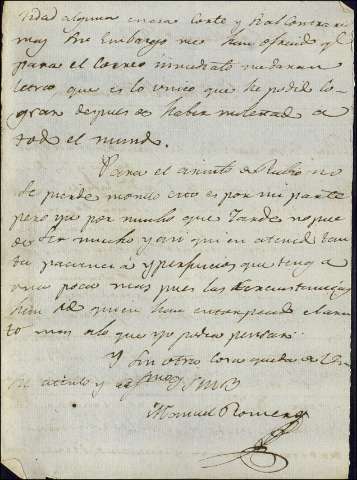 vidad alguna en esa Corte y Real Contra
mas Sin embargo me han ofrecido qe
para el Correo inmediato me daran
que es lo unico que he podido lo-
grar despues de haber molestado a
todo el mundo.
Para el asunto de Rubio no
se pierde momento esto es por mi parte
pero yo por mucho que tarde no pue
de ser mucho y asi que en atencd tan
ta paciencia y que tenga
un poco mas pues las circunstancias
han de quien han entorpecido el asun
to mas de lo que yo podia pensar.
Y Sin otra cosa queda de Vm
su afecto y Sego Servor Q S M B
Manuel Romero